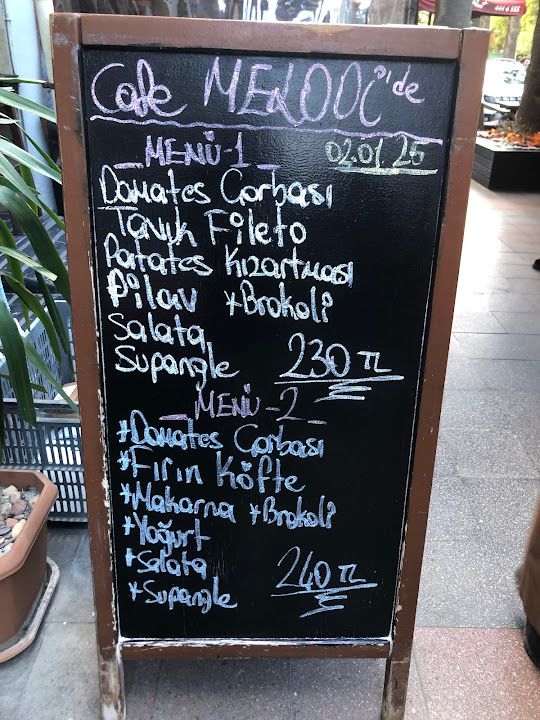 Cafe MELODİ'de
MENÜ-1 02.01.25
Domates Çorbası
Tavuk Fileto
Patates Kızartması
Pilav *Brokoli
Salata
Supangle 230 TL
MENÜ-2
*Domates Çorbası
*Fırın Köfte
*Makarna *Brokoli
*Yoğurt
*Salata
*Supangle 240 TL